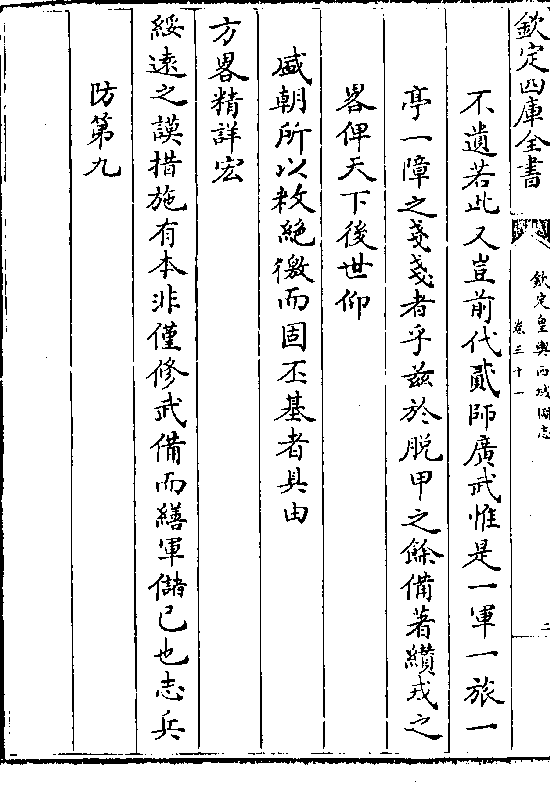 欽定四庫全書
欽定皇輿西域圖志
卷三十一
二
不遺若此又豈前代貳師廣武惟是一軍一旅一
亭一障之戔戔者乎兹於脱甲之餘備著纘戎之
畧俾天下後世仰
盛朝所以敉絶徼而固丕基者具由
方畧精詳宏
綏遠之謨措施有本非僅修武備而繕軍儲已也志兵
防第九